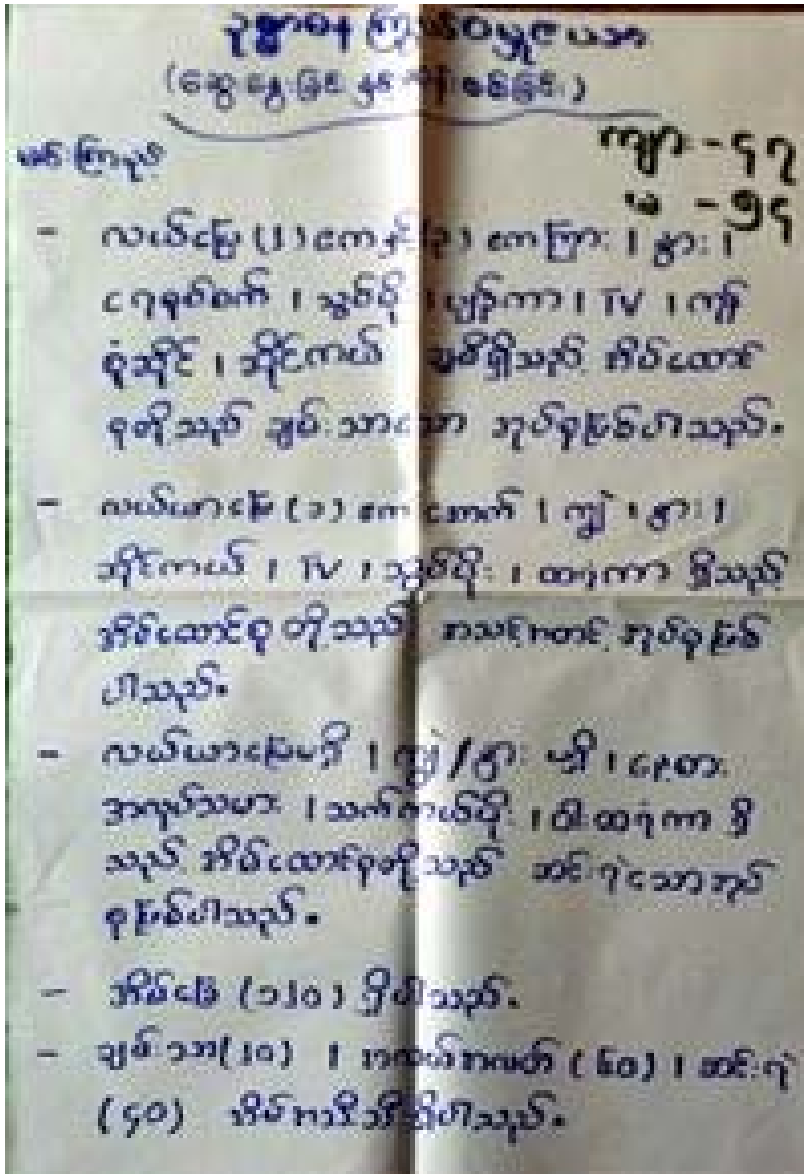 (ဆွေးနွေးခြင်း နှင့် ဆန်းစစ်ခြင်း)
ကျား - ၄၇
မ - ၅၄
- လယ်မြေ (၂) ဧကနှင့် (၃) ဧကကြား ၊ နွား ၊
ရေစုပ်စက် ၊ သွပ်မိုး ၊ ပျဉ်ကာ ၊ TV ၊
ဆိုင်ကယ် ရှိသည့် အိမ်ထောင်
စုတို့သည် ချမ်းသာသော အုပ်စုဖြစ်ပါသည်။
- လယ်ယာမြေ (၁) ဧကအောက် ၊ ကျွဲ ၊ နွား ၊
ဆိုင်ကယ် ၊ TV ၊ သွပ်မိုး ၊ ထရံကာ ရှိသည့်
အိမ်ထောင်စုတို့သည် အသင့်အတင့် အုပ်စုဖြစ်
ပါသည်။
- လယ်ယာမြေမရှိ ၊ ကျွဲ/နွား မရှိ ၊ နေ့စား
အလုပ်သမား ၊ သက်ကယ်မိုး ၊ ဝါးထရံကာ ရှိ
သည့် အိမ်ထောင်စုတို့သည် ဆင်းရဲသောအုပ်
စုဖြစ်ပါသည်။
- အိမ်ခြေ (၁၂၀) ရှိပါသည်။
- ချမ်းသာ (၂၀) ၊ အလယ်အလတ် (၆၀) ၊ ဆင်းရဲ
(၄၀) အိမ် အသီးသီးရှိပါသည်။